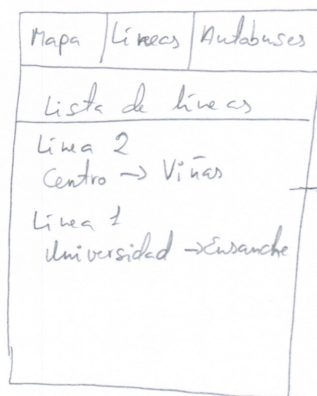 Mapa Lineas Autobuses
Lista de líneas
Linea 2
Centro -> Viñas
Linea 1
Universidad -> Ensanche